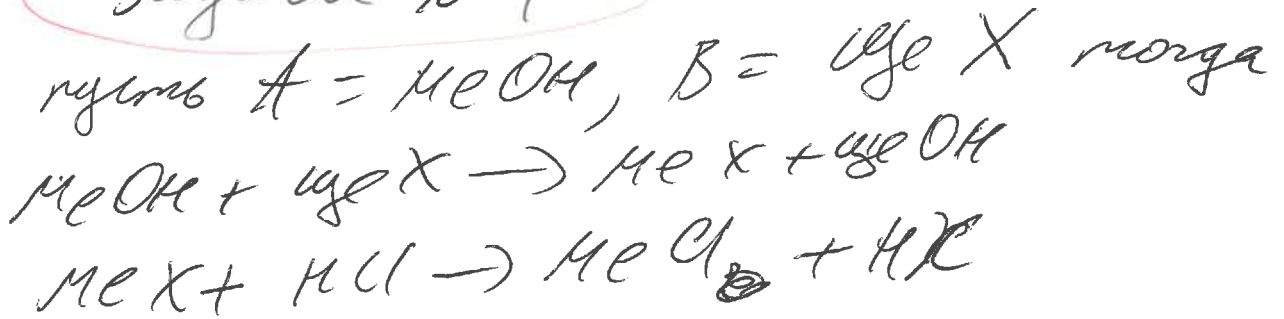 пусть A = MeOH, B = ще X тогда
MeOH + ще X → Me X + ще OH
Me X + HCl → Me Cl + HX